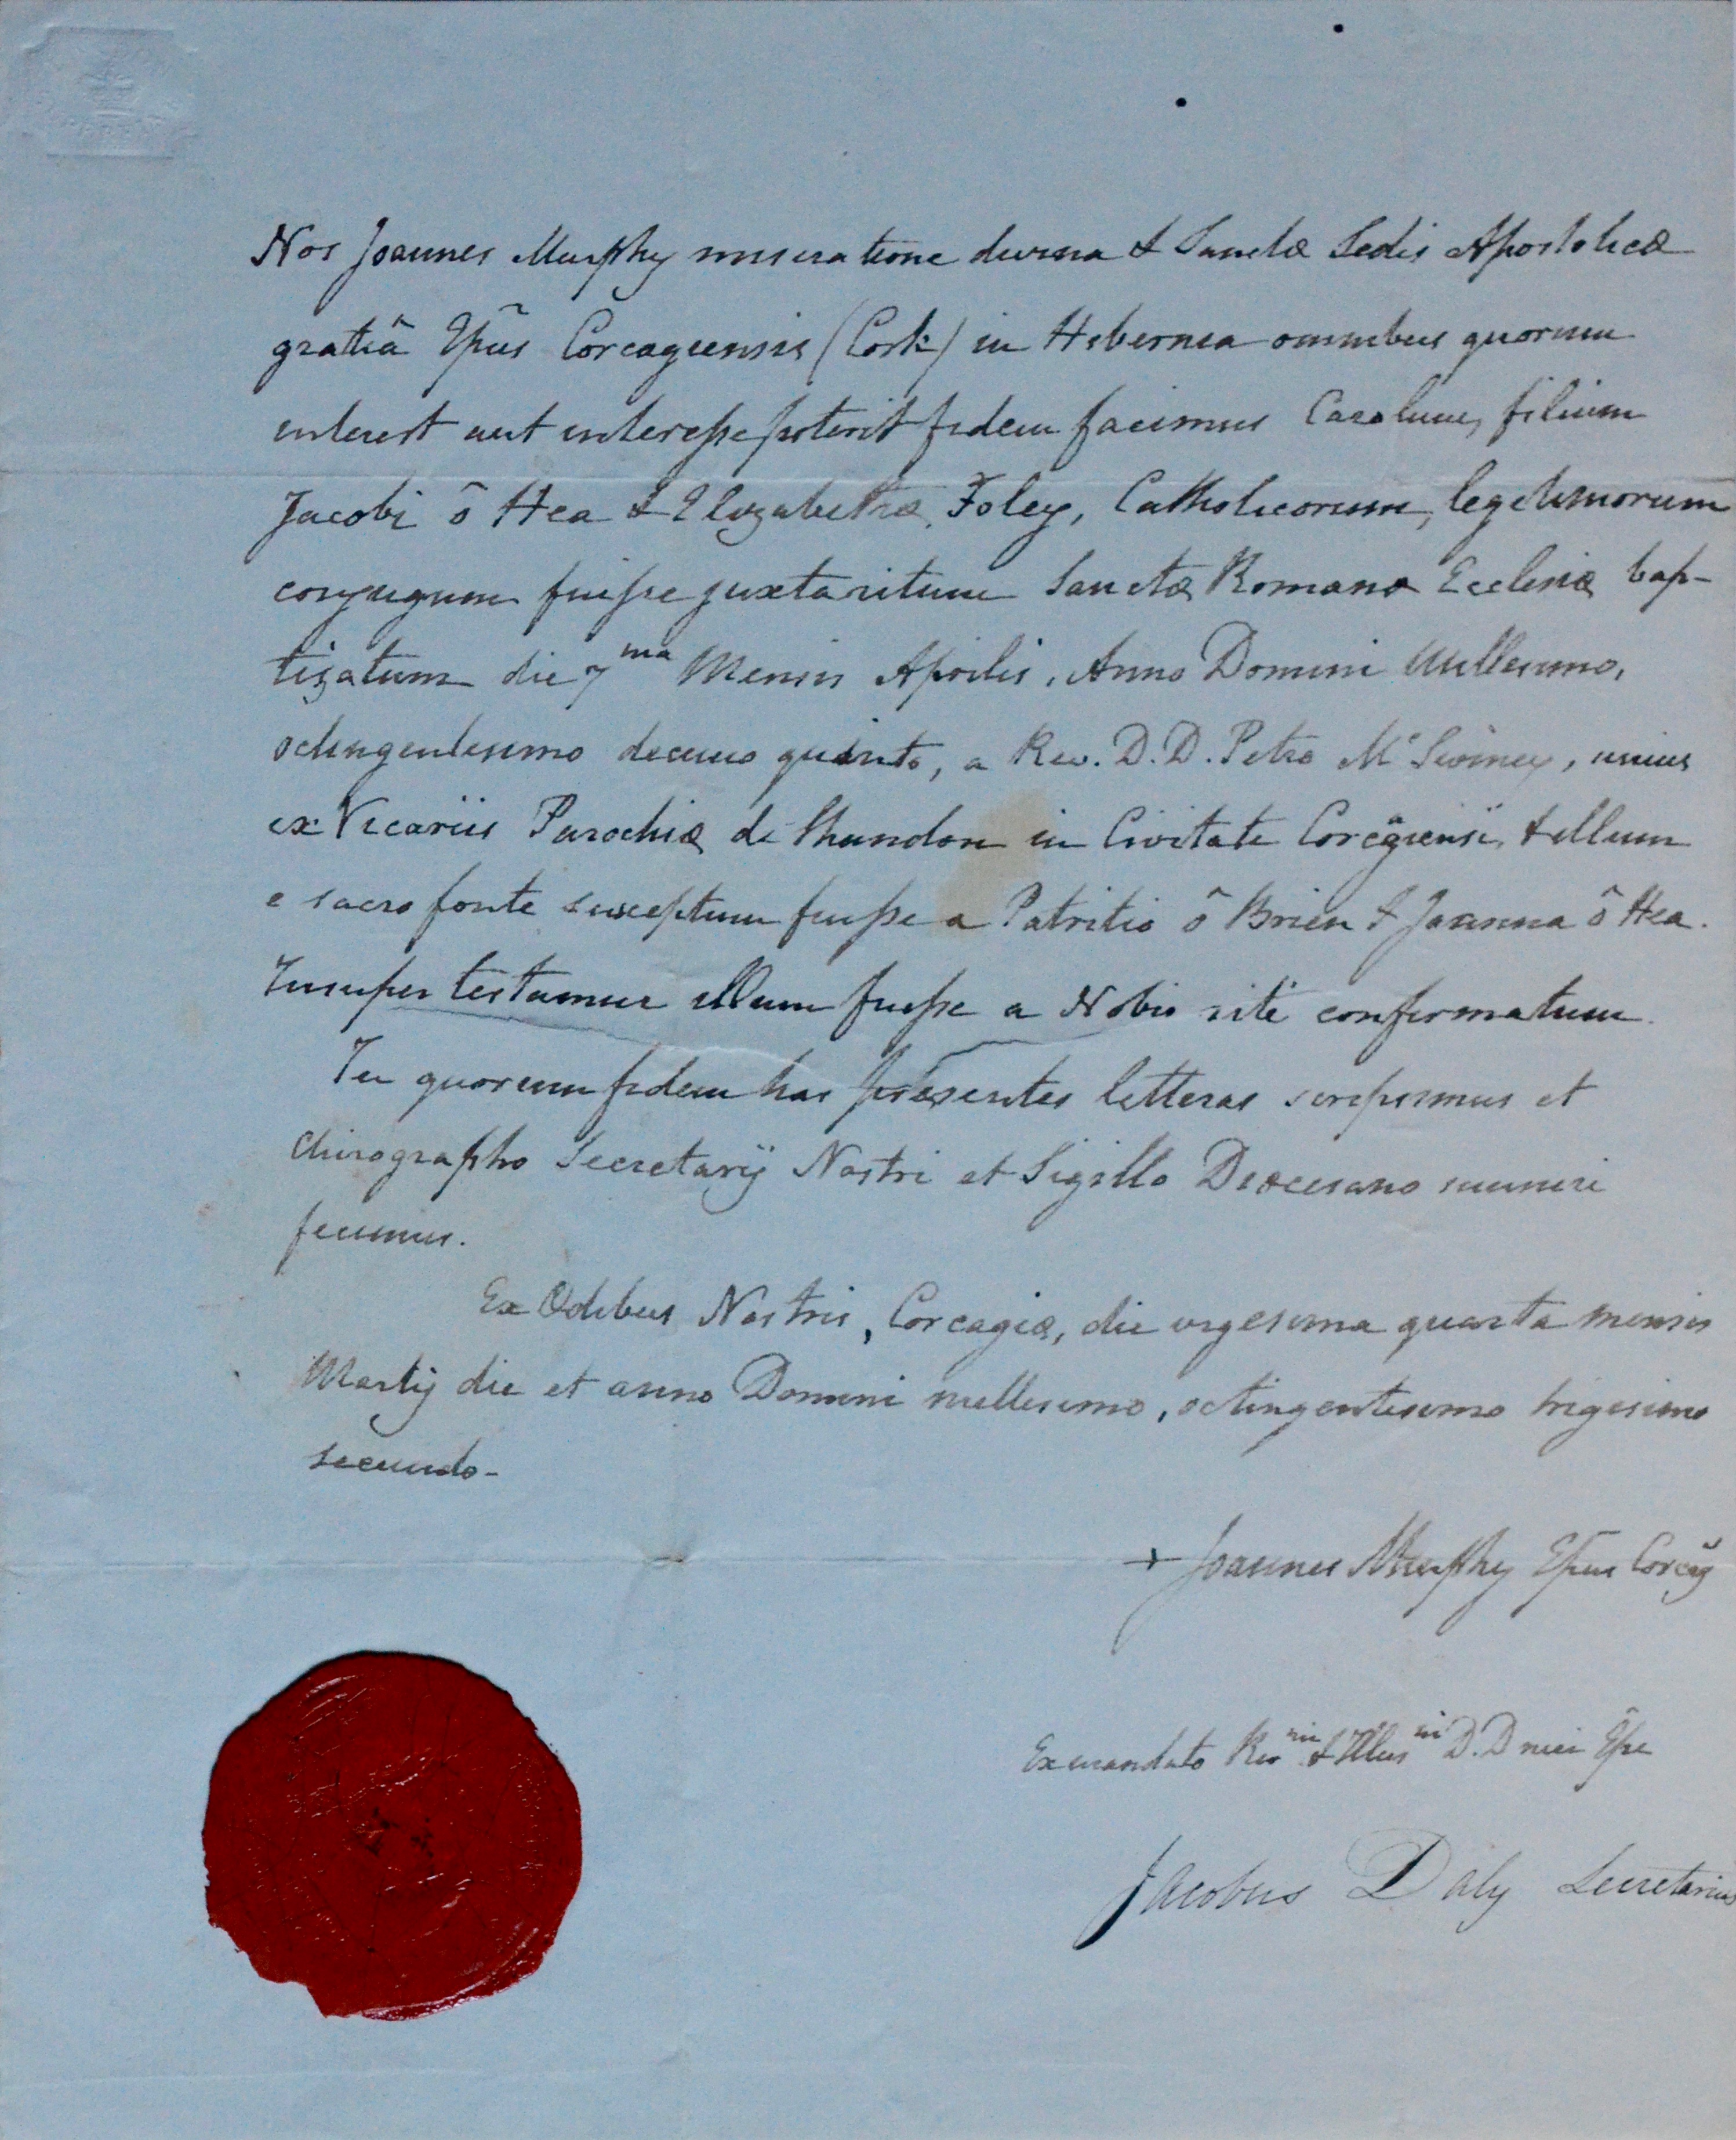 Nos Joannes Murphy miseratione divina & Sanctæ Sedis Apostolicæ
gratiâ Epũs Corcagiensis (Cork) in Hibernia omnibus quorum
interest aut interesse poterit fidem facimus Carolum, filium
Jacobi ō Hea & Elizabethæ Foley, Catholicorum, legitimorum
conjugum fuisse juxta ritum Sanctæ Romanæ Ecclesiæ bap-
tizatum die 7ma Mensis Aprilis, Anno Domini Millesimo,
octingentesimo decimo quinto, a Rev. D.D. Petro Mc Swiney, unius
ex Vicariis Parochiæ de Shandon in Civitate Corcagiensi, & illum
e sacro fonte susceptum fuisse a Patritio ō Brien & Joanna ō Hea.
Insuper testamur illum fuisse a Nobis rite confirmatum.
In quorum fidem has præsentes litteras scripsimus et
chirographo Secretarij Nostri et Sigillo Diocesano muniri
fecimus.
Ex Œdibus Nostris, Corcagiæ, die vigesima quarta mensis
Martij die et anno Domini millesimo, octingentesimo trigesimo
secundo-
+ Joannes Murphy Epus Corcag
Ex mandato Revmi & Illusmi D.D mei Epi
Jacobus Daly Secretarius